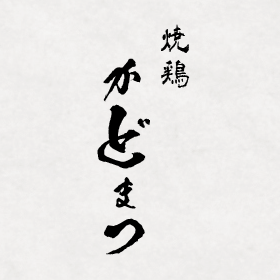 焼鶏
かどまつ